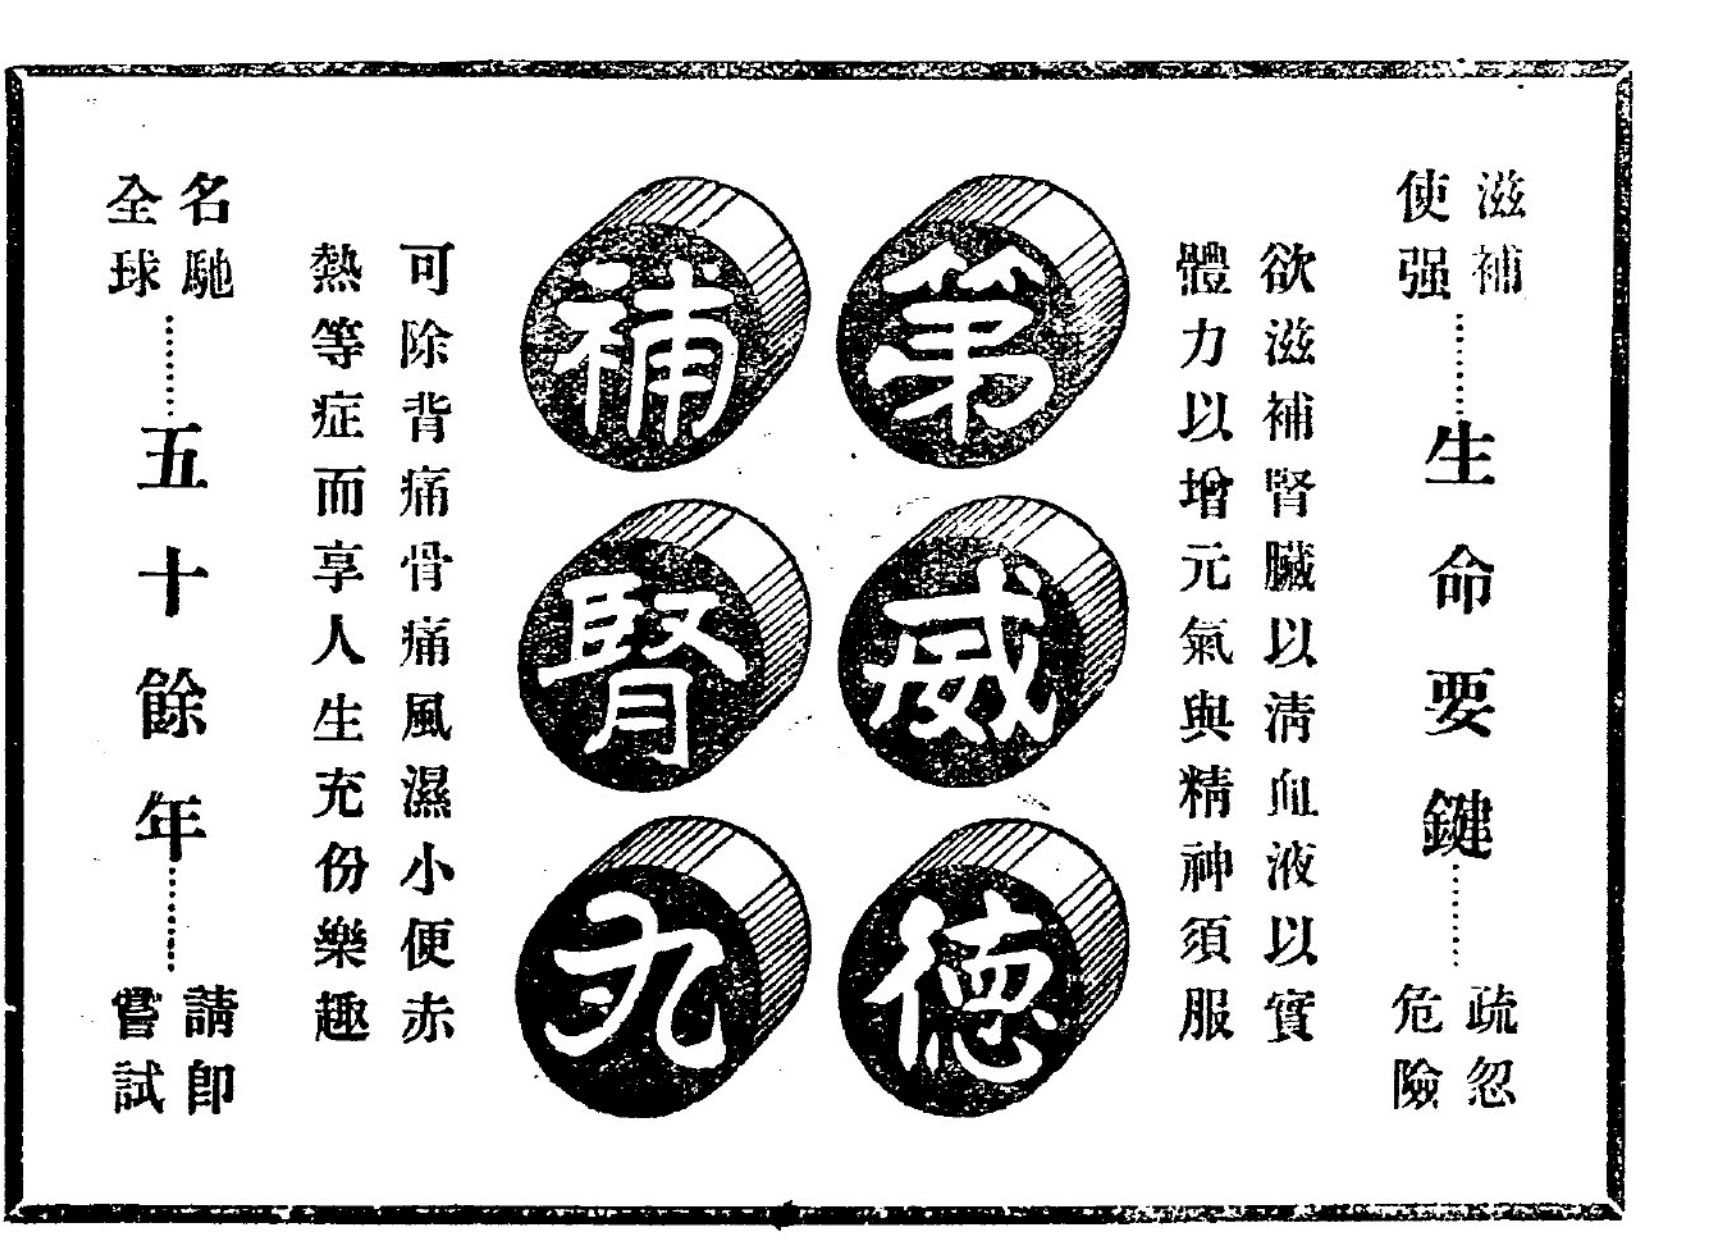 滋補
使强
生命要鍵
疏忽
危險
欲滋補腎臟以淸血液以實
體力以增元氣與精神須服
第威德
補腎丸
可除背痛骨痛風濕小便赤
熱等症而享人生充份樂趣
名馳
全球
五十餘年
請卽
嘗試